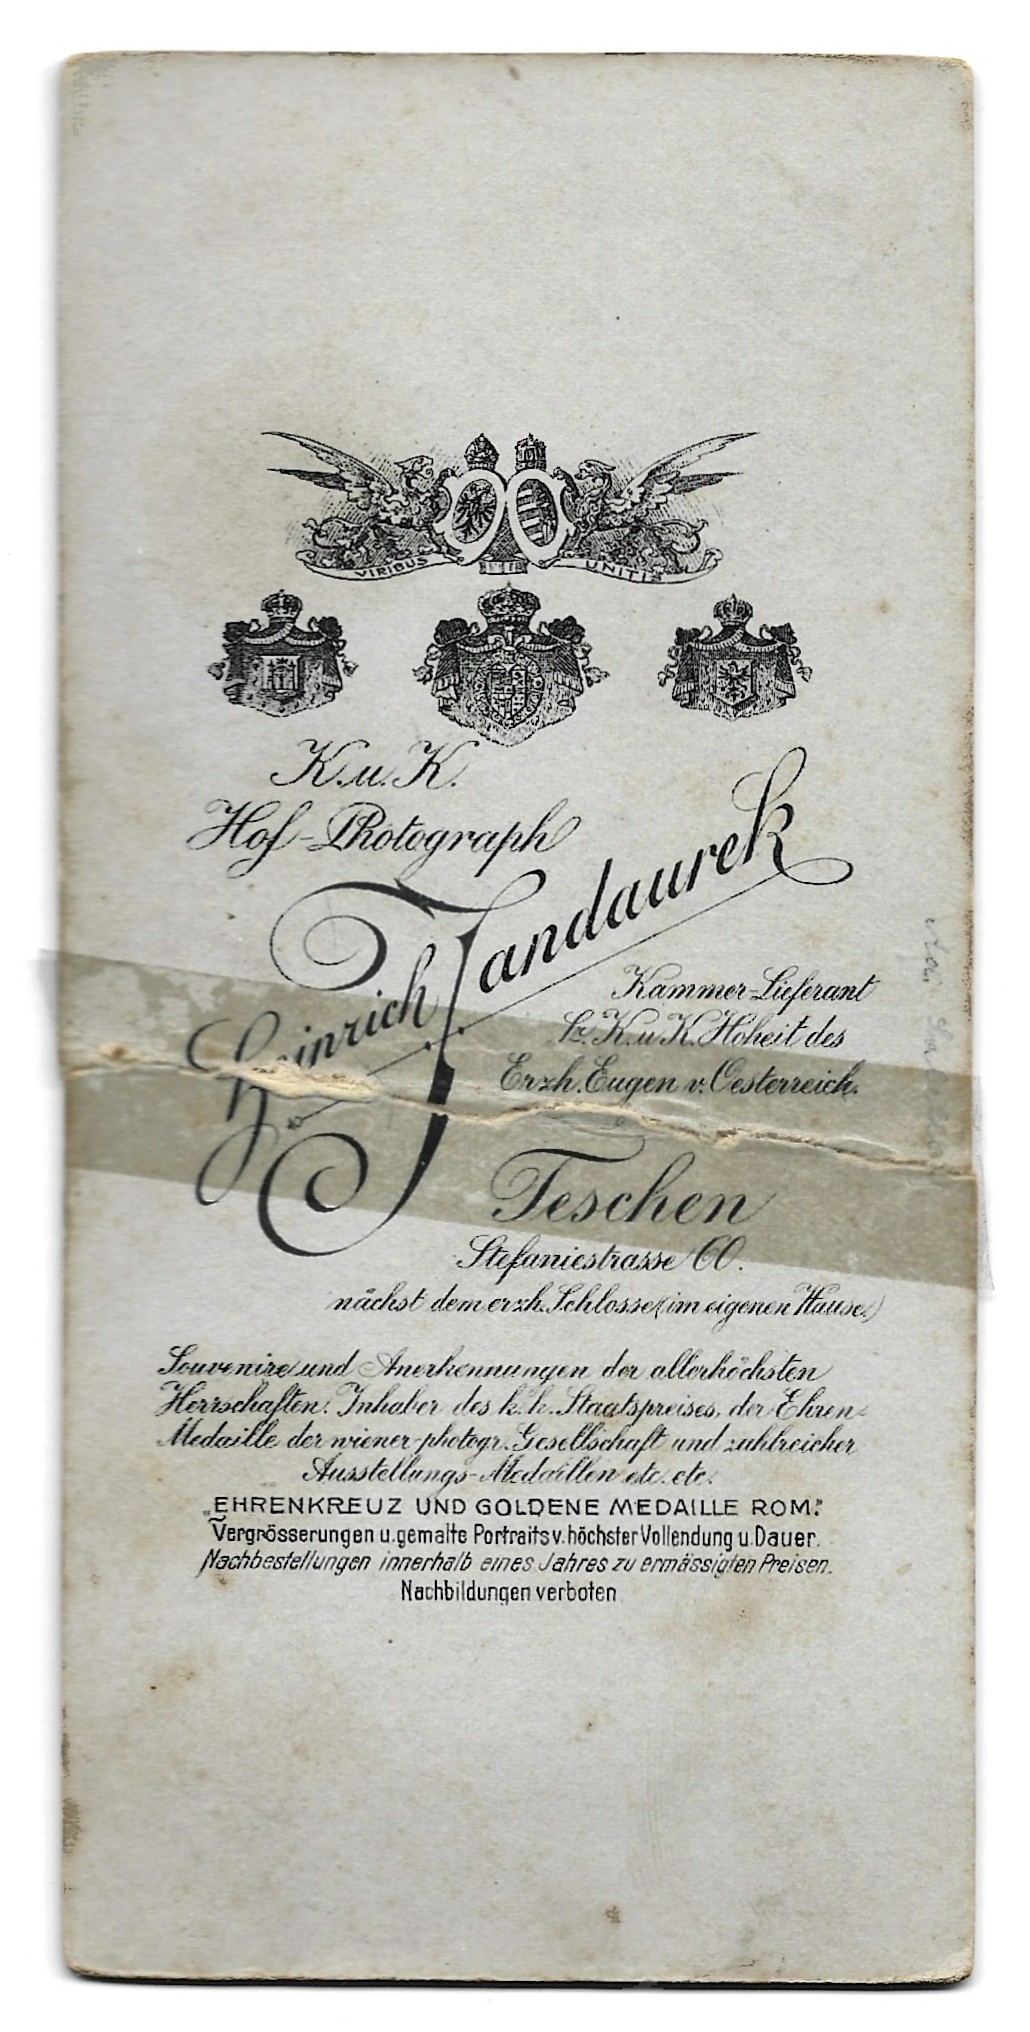 VIRIBUS UNITIS
K. u. K.
Hof-Photograph
Heinrich Jandaurek
Kammer-Lieferant
Sr. K. u. K. Hoheit des
Erzh. Eugen v. Oesterreich.
Teschen
Stefaniestrasse 60.
nächst dem erzh. Schlosse (im eigenen Hause.)
Souvenire und Anerkennungen der allerhöchsten
Herrschaften. Inhaber des k. k. Staatspreises, der Ehren-
Medaille der wiener photogr. Gesellschaft und zahlreicher
Ausstellungs-Medaillen etc. etc.
„EHRENKREUZ UND GOLDENE MEDAILLE ROM."
Vergrösserungen u. gemalte Portraits v. höchster Vollendung u. Dauer.
Nachbestellungen innerhalb eines Jahres zu ermässigten Preisen.
Nachbildungen verboten